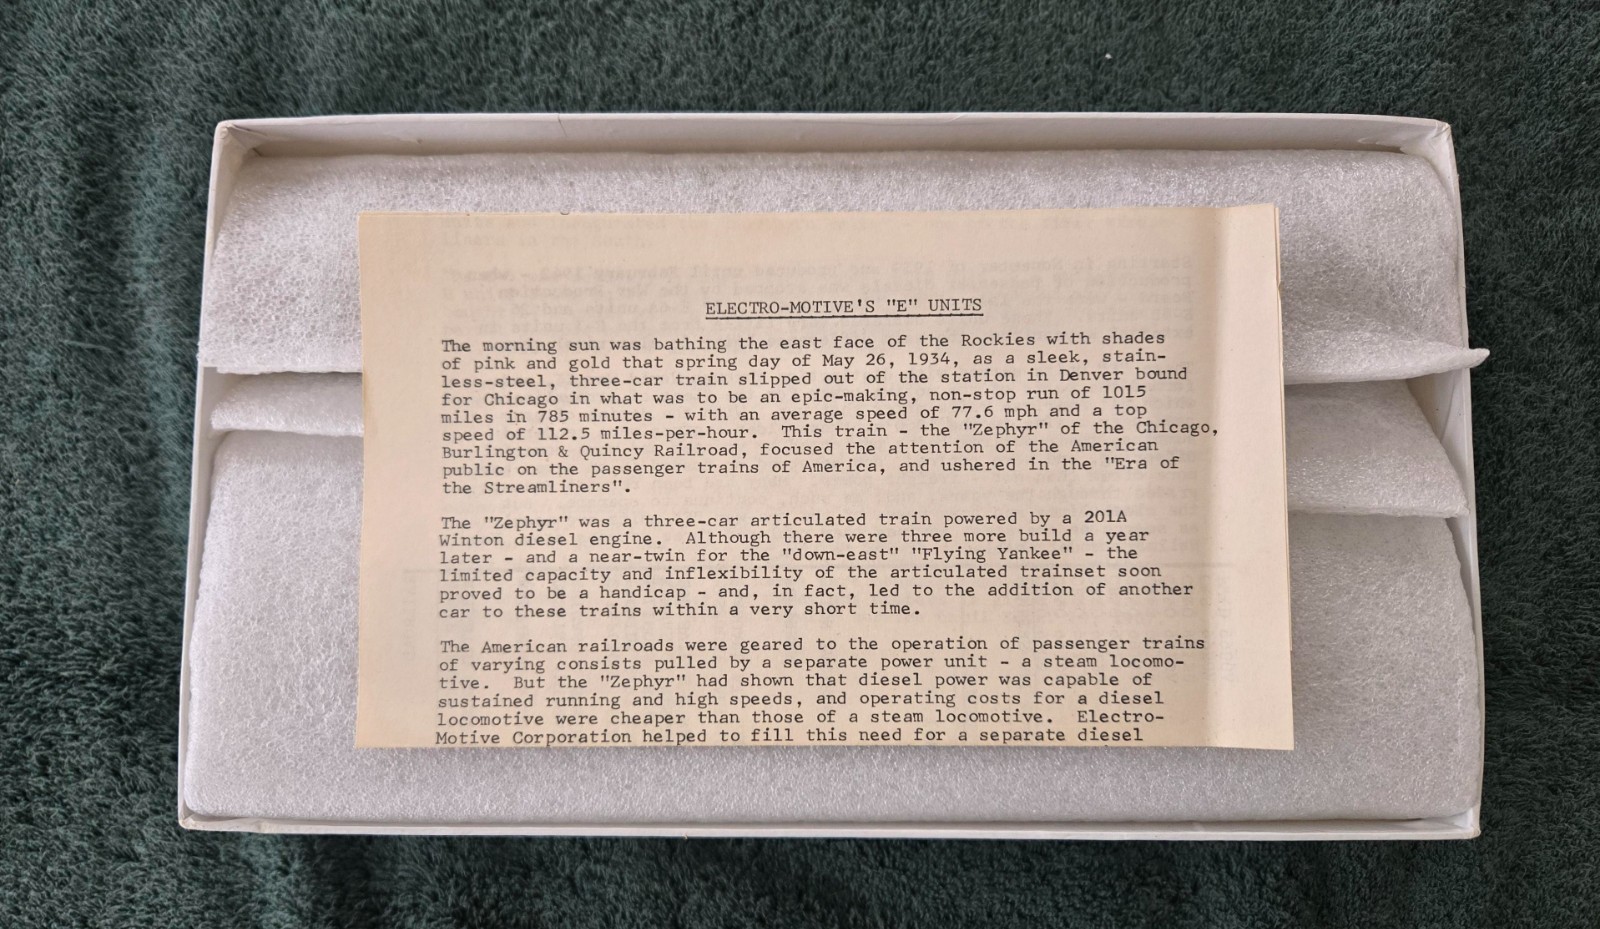 ELECTRO-MOTIVE'S "E" UNITS
The morning sun was bathing the east face of the Rockies with shades
of pink and gold that spring day of May 26, 1934, as a sleek, stain-
less-steel, three-car train slipped out of the station in Denver bound
for Chicago in what was to be an epic-making, non-stop run of 1015
miles in 785 minutes - with an average speed of 77.6 mph and a top
speed of 112.5 miles-per-hour. This train - the "Zephyr" of the Chicago,
Burlington & Quincy Railroad, focused the attention of the American
public on the passenger trains of America, and ushered in the "Era of
the Streamliners".
The "Zephyr" was a three-car articulated train powered by a 201A
Winton diesel engine. Although there were three more build a year
later - and a near-twin for the "down-east" "Flying Yankee" - the
limited capacity and inflexibility of the articulated trainset soon
proved to be a handicap - and, in fact, led to the addition of another
car to these trains within a very short time.
The American railroads were geared to the operation of passenger trains
of varying consists pulled by a separate power unit - a steam locomo-
tive. But the "Zephyr" had shown that diesel power was capable of
sustained running and high speeds, and operating costs for a diesel
locomotive were cheaper than those of a steam locomotive. Electro-
Motive Corporation helped to fill this need for a separate diesel